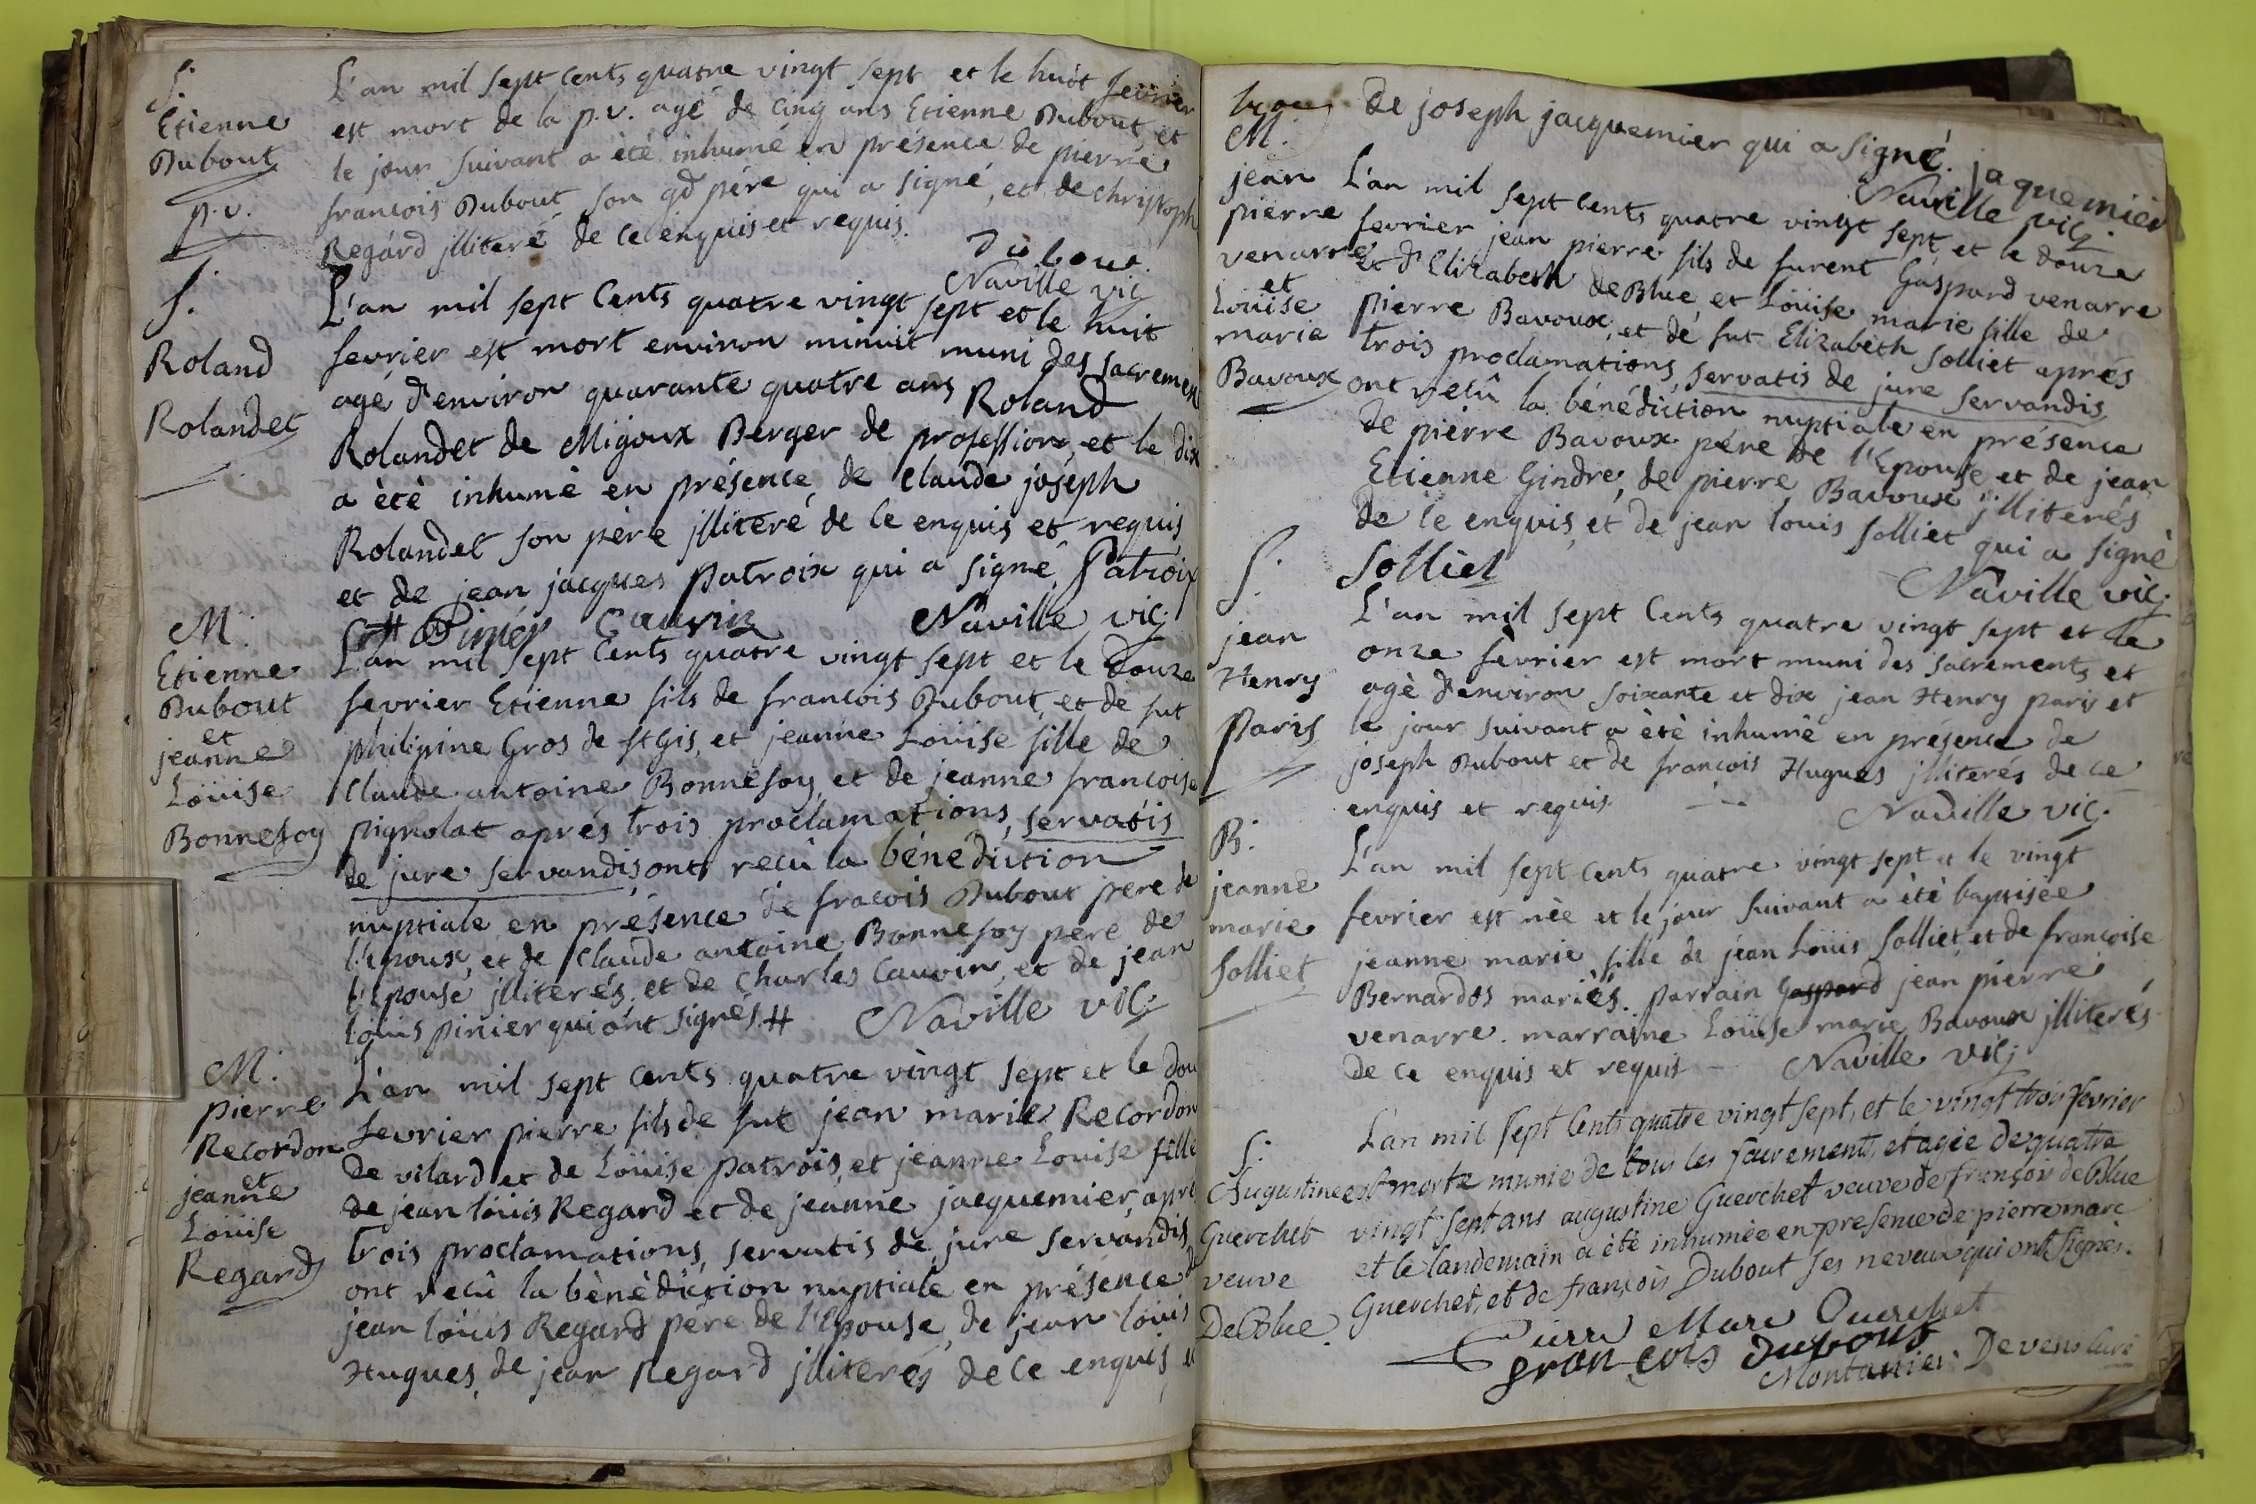 S.
Etienne
Dubout
p.v.
L'an mil sept cents quatre vingt sept et le huit fevrier
est mort de la p.v. agé de cinq ans Etienne Dubout et
le jour suivant a èté inhumé en présence de pierre
francois Dubout son gd pére qui a signé, et de christoph
Regard jlliteré de ce enquis et requis.
Dubout.
Naville vic
S.
Roland
Rolandet
L'an mil sept Cents quatre vingt sept et le huit
fevrier est mort environ minuit muni des sacremen
agé d'environ quarante quatre ans Roland
Rolandet de Migoux Berger de profession, et le dix
a ètè inhumè en présence de Claude joséph
Rolandet son pére jlliteré de ce enquis et requis
et de jean jacques patroix qui a signé. Patroix
# Pinier Cauvin Naville vic;
M.
Etienne
Dubout
et
jeanne
Loüise
Bonnefoy
L'an mil sept Cents quatre vingt sept et le Douze
fevrier Etienne fils de francois Dubout, et de fut
philipine Gros de st Gis, et jeanne Loüise fille de
Claude antoine Bonnefoy et de jeanne francoise
pignolat aprés trois proclamations, servatis
de jure servandis ont recû la bénédiction
nuptiale en présence de fracois Dubout pere de
l'epoux, et de Claude antoine Bonnefoy pere de
l'Epouse jlliterés, et de Charles Cauvin, et de jean
loüis pinier qui ont signés # Naville vic;
M.
pierre
Recordon
et
jeanne
Loüise
Regard
L'an mil sept cents quatre vingt sept et le dou
fevrier pierre fils de fut jean marie Recordon
de vilard et de Loüise patrois, et jeanne Louise fille
de jean loüis Regard et de jeanne jacquemier, apre
trois proclamations, servatis de jure servandis
ont recû la bènèdiction nuptiale en présence d
jean loüis Regard pére de l'Epouse, de jean louis
Hugues, de jean Regard jlliterés de ce enquis, e
De joseph jacquemier qui a signé. jaquemier
Naville vic.
M.
jean
pierre
venarre
et
Loüise
marie
Bavoux
L'an mil sept cents quatre vingt sept, et le douze
fevrier jean pierre fils de furent Gaspard venarre
et d'Elizabeth DeBlue, et Loüise marie fille de
pierre Bavoux, et de fut Elizabeth Solliet aprés
trois proclamations, servatis de jure servandis
ont recû la bénédiction nuptiale en présence
de pierre Bavoux pére de l'Epouse et de jean
Etienne Gindre, de pierre Bavoux jlliterés
de ce enquis, et de jean louis Solliet qui a signé
Solliet
Naville vic;
S.
jean
Henry
Paris
L'an mil sept Cents quatre vingt sept et le
onze fèvrier est mort muni des sacrements et
agè d'environ soixante et dix jean Henry paris et
le jour suivant a èté inhumé en présence de
joseph Dubout et de francois Hugues jlliterés de ce
enquis et requis
Naville vic.
B.
jeanne
marie
Solliet
L'an mil sept cents quatre vingt sept et le vingt
fevrier est nèe et le jour suivant a ètè baptisèe
jeanne marie fille de jean Loüis Solliet et de francoise
Bernardos mariés. parrain Gaspard jean pierre
venarre. marraine Loüise marie Bavoux jlliterés
de ce enquis et requis Naville vic;
S.
Augustine
Guerchet
veuve
DeBlue.
L'an mil sept Cents quatre vingt sept, et le vingt trois fevrier
est morte munie de tous les sacrements, et agée de quatre
vingt sept ans augustine Guerchet veuve de françois deBlue
et le landemain a été inhumée en presence de pierre marc
Guerchet, et de françois Dubout ses neveux qui ont signés.
Pierre Marc Guerchet
françois Dubout
Montanier Devens curé